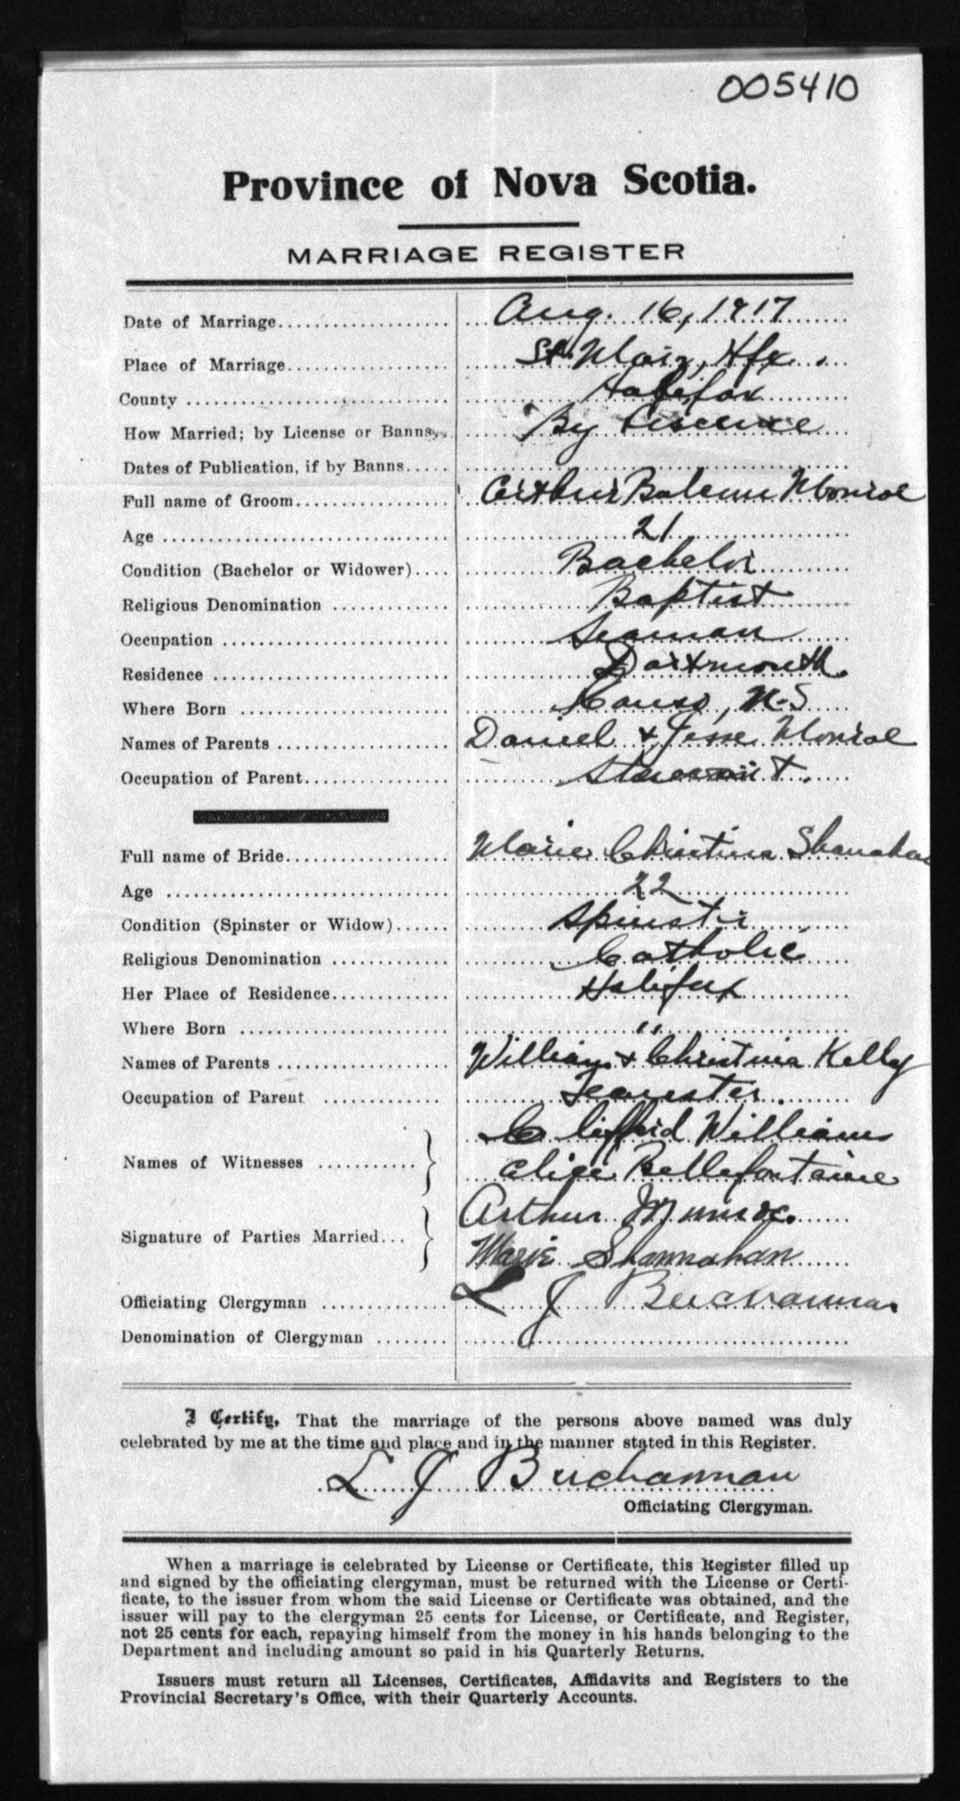 005410
Province of Nova Scotia.
MARRIAGE REGISTER
Date of Marriage Aug. 16, 1917
Place of Marriage St. Mary, Hfx.
County Halifax
How Married; by License or Banns By Liscence
Dates of Publication, if by Banns
Full name of Groom Arthur Monroe
Age 21
Condition (Bachelor or Widower) Bachelor
Religious Denomination Baptist
Occupation Seaman
Residence Dartmouth
Where Born Canso, N.S
Names of Parents Daniel & Jesse Monroe
Occupation of Parent
Full name of Bride Marie Christina Shanahan
Age 22
Condition (Spinster or Widow) Spinster
Religious Denomination Catholic
Her Place of Residence Halifax
Where Born "
Names of Parents William & Christina Kelly
Occupation of Parent Teamster.
Clifford Williams
Names of Witnesses Alice Bellefontaine
Arthur Munroe.
Signature of Parties Married Marie Shannahan
Officiating Clergyman L J Buchannan
Denomination of Clergyman
I Certify, That the marriage of the persons above named was duly
celebrated by me at the time and place and in the manner stated in this Register.
L J Buchannan
Officiating Clergyman.
When a marriage is celebrated by License or Certificate, this Register filled up
and signed by the officiating clergyman, must be returned with the License or Certi-
ficate, to the issuer from whom the said License or Certificate was obtained, and the
issuer will pay to the clergyman 25 cents for License, or Certificate, and Register,
not 25 cents for each, repaying himself from the money in his hands belonging to the
Department and including amount so paid in his Quarterly Returns.
Issuers must return all Licenses, Certificates, Affidavits and Registers to the
Provincial Secretary's Office, with their Quarterly Accounts.